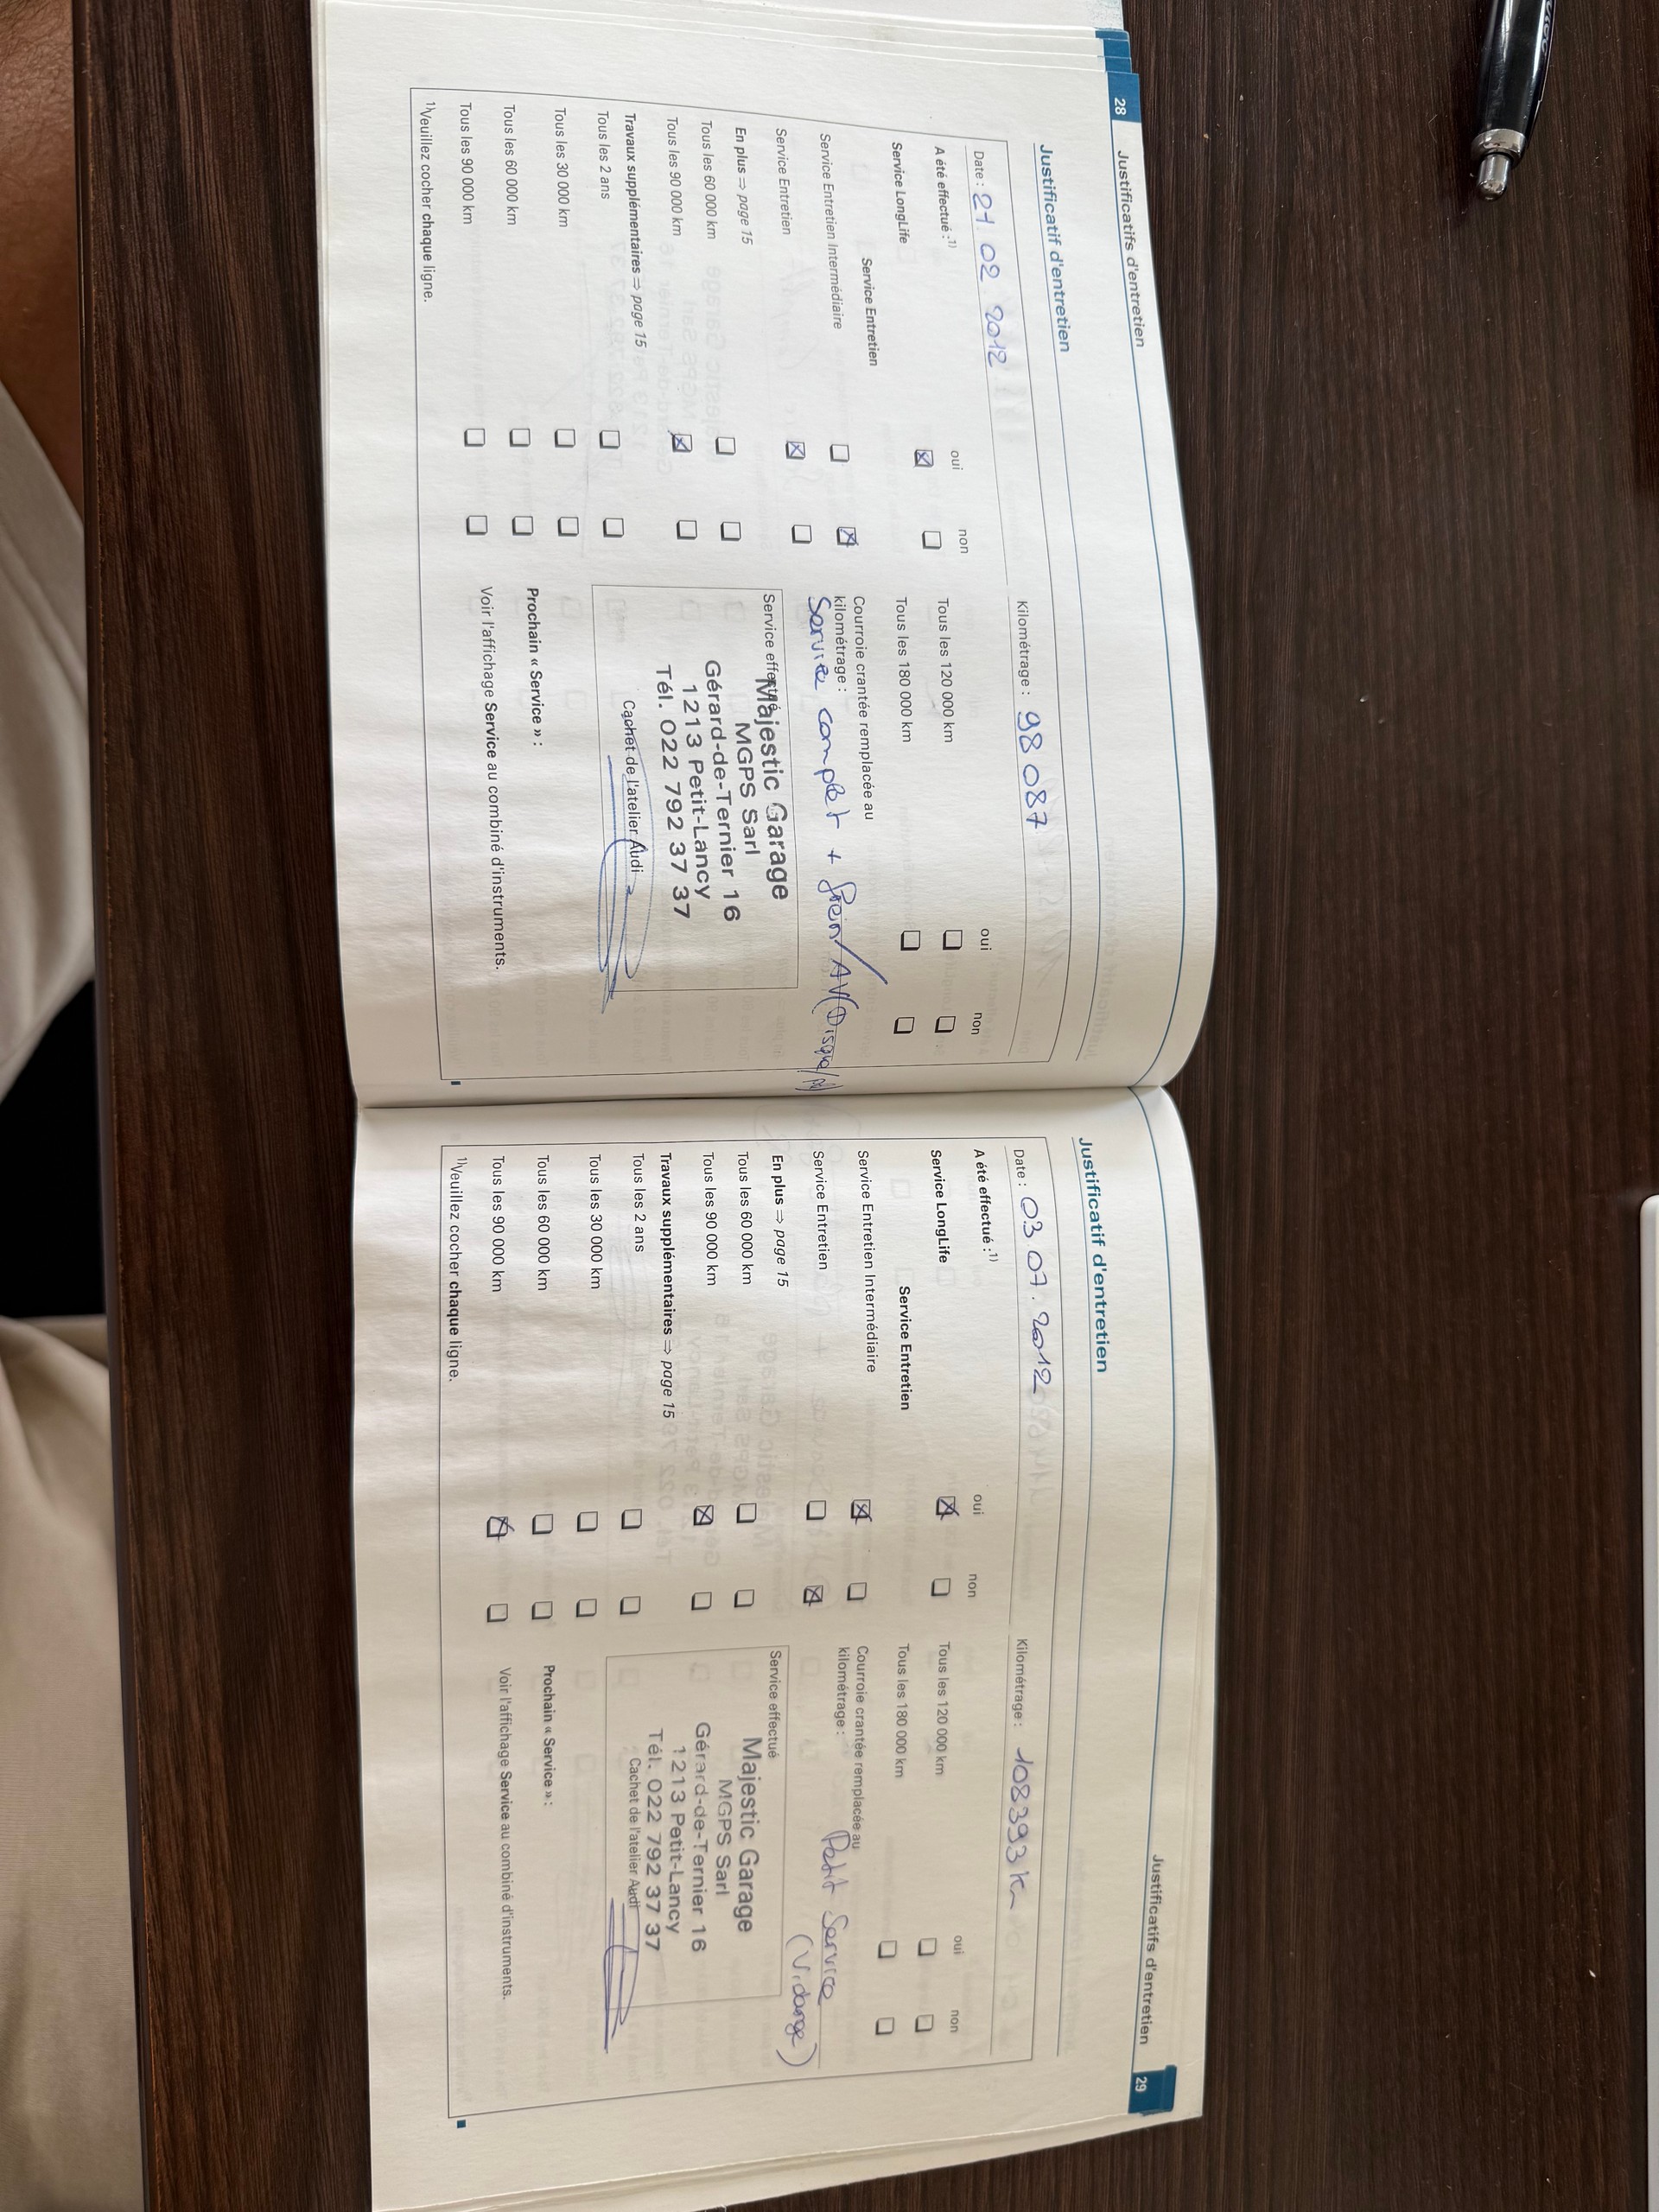 28
Justificatifs d'entretien
Justificatif d'entretien
Date : 21 02 2012
Kilométrage : 98 087
A été effectué :1)
oui
non
oui
non
Service LongLife
Tous les 120 000 km
Tous les 180 000 km
Service Entretien
Service Entretien Intermédiaire
Courroie crantée remplacée au
kilométrage :
Service Entretien
Service complet + frein/AV(Disque/
En plus ⇒ page 15
Tous les 60 000 km
Tous les 90 000 km
Service effectué
Majestic Garage
MGPS Sarl
Gérard-de-Ternier 16
1213 Petit-Lancy
Tél. 022 792 37 37
Cachet de l'atelier Audi
Travaux supplémentaires ⇒ page 15
Tous les 2 ans
Tous les 30 000 km
Tous les 60 000 km
Tous les 90 000 km
Prochain « Service » :
Voir l'affichage Service au combiné d'instruments.
1)Veuillez cocher chaque ligne.
Justificatifs d'entretien
29
Justificatif d'entretien
Date : 03.07.2012
Kilométrage : 108393 km
A été effectué :1)
oui
non
oui
non
Service LongLife
Tous les 120 000 km
Tous les 180 000 km
Service Entretien
Service Entretien Intermédiaire
Courroie crantée remplacée au
kilométrage :
Service Entretien
Petit Service
(Vidange)
En plus ⇒ page 15
Tous les 60 000 km
Tous les 90 000 km
Service effectué
Majestic Garage
MGPS Sarl
Gérard-de-Ternier 16
1213 Petit-Lancy
Tél. 022 792 37 37
Cachet de l'atelier Audi
Travaux supplémentaires ⇒ page 15
Tous les 2 ans
Tous les 30 000 km
Tous les 60 000 km
Tous les 90 000 km
Prochain « Service » :
Voir l'affichage Service au combiné d'instruments.
1)Veuillez cocher chaque ligne.